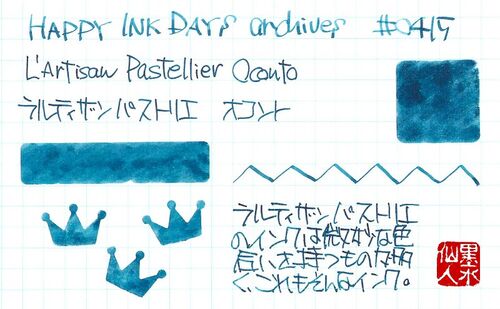 HAPPY INK DAYS archives #0415
L'Artisan Pastellier Oconto
ラルティザンパストリエ オコント
ラルティザンパストリエ
のインクは微妙な色
合いを持つものが多
く、これもそんなインク。
墨水
仙人